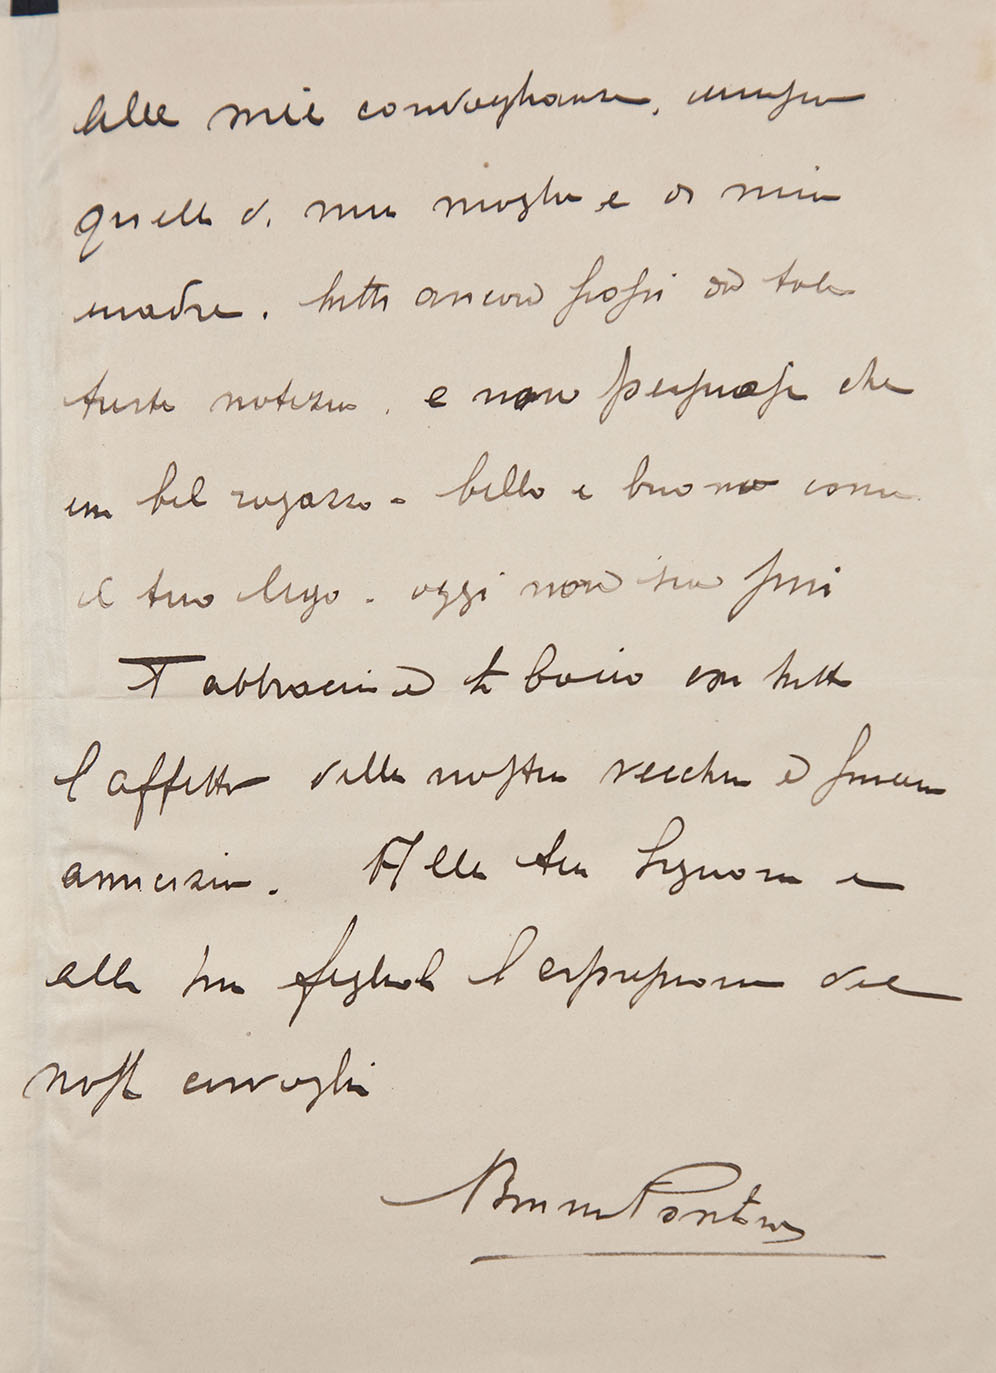 Alle mie condoglianze, unisco
quelle di mia moglie e di mia
madre. Tutti ancora scossi da tale
triste notizia. e non persuasi che
un bel ragazzo - bello e buono come
il tuo - oggi non sia più
T'abbraccio e ti bacio con tutto
l'affetto della nostra vecchia e sincera
amicizia. Alla tua Signora e
alla tua figliola l'espressione del
nostro cordoglio